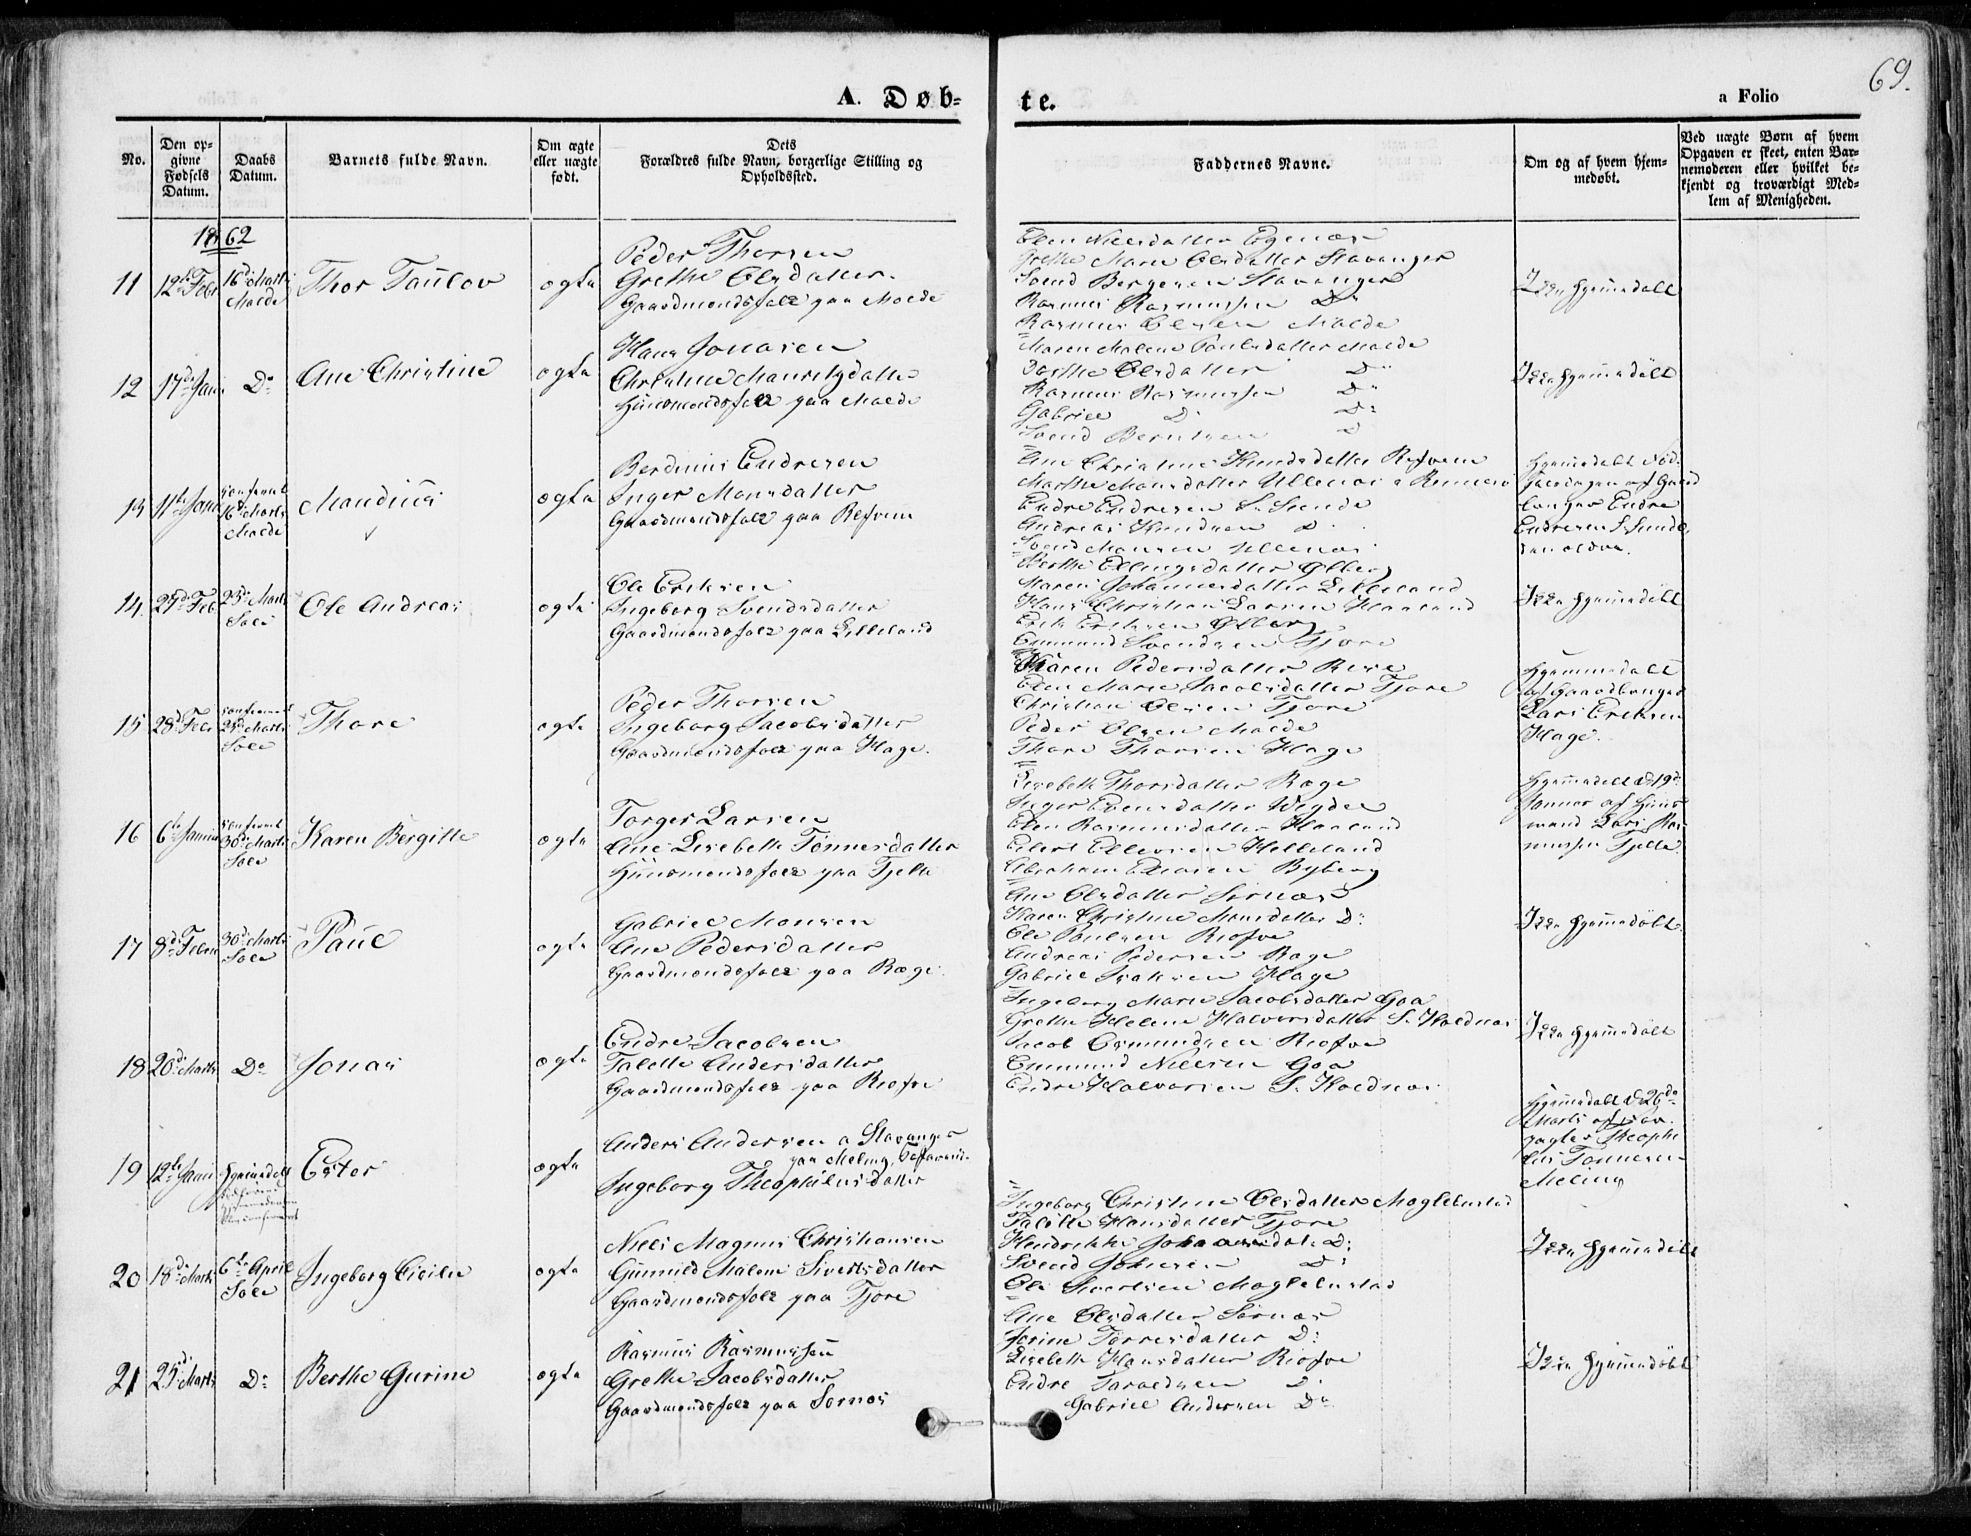 69.
A. Døb-
te.
a Folio
No.
Den op-
givne
Fødsels
Datum.
Daabs
Datum.
Barnets fulde Navn.
Om ægte
eller uægte
født.
Dets
Forældres fulde Navn, borgerlige Stilling og
Opholdssted.
Faddernes Navne.
Om og af hvem hjem-
medøbt.
Ved uægte Børn af hvem
Opgaven er skeet, enten Bar-
nemoderen eller hvilket be-
kjendt og troværdigt Med-
lem af Menigheden.
1862
11
12te Febr
16de Marts
Malde
Thor Taulov
ægte
Peder Thorsen
Grethe Olsdatter
Gaardmandsfolk paa Malde
Elen Nielsdatter
Grethe Marie Olsdatter Stavanger
Svend Bergesen Stavanger
Rasmus Rasmussen Do
Rasmus Olsen Malde
Ikke hjemmedøbt
12
17de Janu
Do
Ane Christine
ægte
Hans Jonasen
Christine Mauritzdatter
Huusmandsfolk paa Malde
Maren Malene Paulsdatter Malde
Berthe Olsdatter Do
Rasmus Rasmussen Do
Gabriel D: Do
Svend Berntsen D
Ikke hjemmedøbt
13
11te Janu
confirmeret
16de Marts
Malde
Mandius
ægte
Berdinus Endresen
Inger Monsdatter
Gaardmandsfolk paa Refsnes
Ane Christine Knudsdatter Refsnes
Marthe Monsdatter Ullenæs
Endre Endresen S. Sunde
Andreas Knudsen D
Svend Monsen Ullenæs
hjemmedøbt
af Gaard
bruger Endre
Endresen S. Sunde
14.
27de Feb
23de Marts
Sole
Ole Andreas
ægte
Ole Eriksen
Ingeborg Svendsdatter
Gaardmandsfolk paa Lilleland
Berthe Ellingsdatter Ølberg
Maren Johannesdatter Lilleland
Hans Christian Larsen Haaland
Erik Eriksen Ølberg
Osmund Svendsen Tjore
Ikke hjemmedøbt
15
28de Febr
confirmeret
23de Marts
Sole
Thore
ægte
Peder Thorsen
Ingeborg Jacobsdatter
Gaardmandsfolk paa Hage.
Maren Pedersdatter Rege
Elen Marie Jacobsdatter Tjore
Christian Olsen Tjore
Peder Olsen Malde
Thore Thorsen Hage
hjemmedøbt
af Gaardbruger
Lars Eriksen
Hage.
16
6te Janua
confirmeret
30de Marts
Sole
Karen Bergitte
ægte
Torger Larsen
Ane Lisebeth Tønnesdatter
Huusmandsfolk paa Tjelta
Lisebeth Thorsdatter Rege
Inger Edensdatter
Elen Rasmusdatter Haaland
Eilert Ellevsen Helleland
Abraham Edvasen Byberg
hjemmedøbt d 19de
Januar af Huus
mand Lars Ras
mussen Tjelta.
17
8de Febru
30de Marts
Sole
Paul
ægte
Gabriel Monsen
Ane Pedersdatter
Gaardmandsfolk paa Rege
Ane Olsdatter Sørnæs
Karen Christine Monsdatter D:
Ole Paulsen Risfoe
Andreas Pedersen Rage
Gabriel Isaksen Hage
Ikke hjemmedøbt
18
20de Marts
Do
Jonas
ægte
Endre Jacobsen
Talette Andersdatter
Gaardmandsfolk paa Risfoe
Ingeborg Marie Jacobsdatter Goa
Grethe Helene Halvorsdatter S. Kolnæs
Jacob Osmundsen Risfoe
Osmund Nielsen Goa
Endre Halvorsen S. Kolnæs
Ikke hjemmedøbt
19
12te Janu
hjemmedøbt
Ester
ægte
Anders Andersen a Stavanger
paa Meling,
Ingeborg Theophilusdatter
hjemmedøbt d 26de
Marts af
Theophi
lus Tønnesen
Meling
20
18de Marts
6te April
Sole
Ingeborg Cicilie
ægte
Niels Magnus Christiansen
Gunnild Malene Sivertsdatter
Gaardmandsfolk paa Tjore
Ingeborg Christine Olsdatter Maglebustad
Talette Hansdatter Tjore
Hendrikke Johannesdat. D:
Svend Johnsen D:
Ole Sivertsen Maglebustad
Ikke hjemmedøbt
21
25de Marts
Do
Berthe Gurine
ægte
Rasmus Rasmussen
Grethe Jacobsdatter
Gaardmandsfolk paa Sørnæs
Ane Olsdatter Sørnæs
Jorine Torresdatter D:
Lisebeth Hansdatter Risfoe
Endre D:
Gabriel Andersen Do
Ikke hjemmedøbt